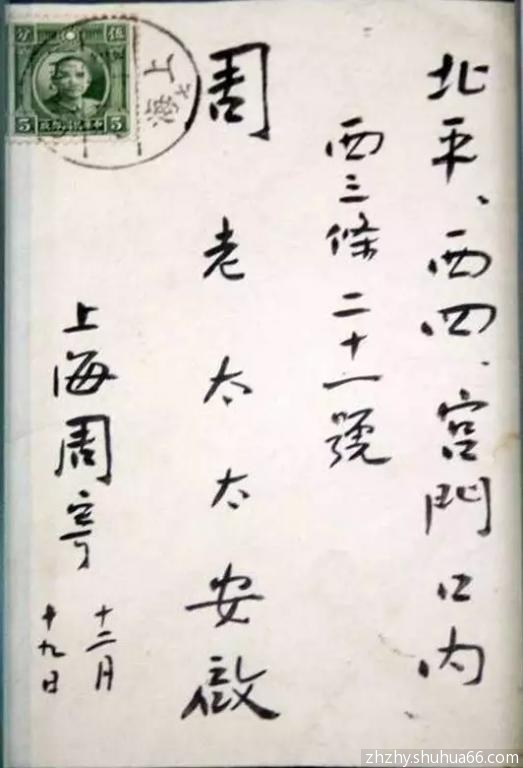 北平、西四、宫門口内
西三條二十一號
周老太太安啟
上海周寄
十二月
十九日
伍分
5 5
上海
zhzhyshuhua66.com